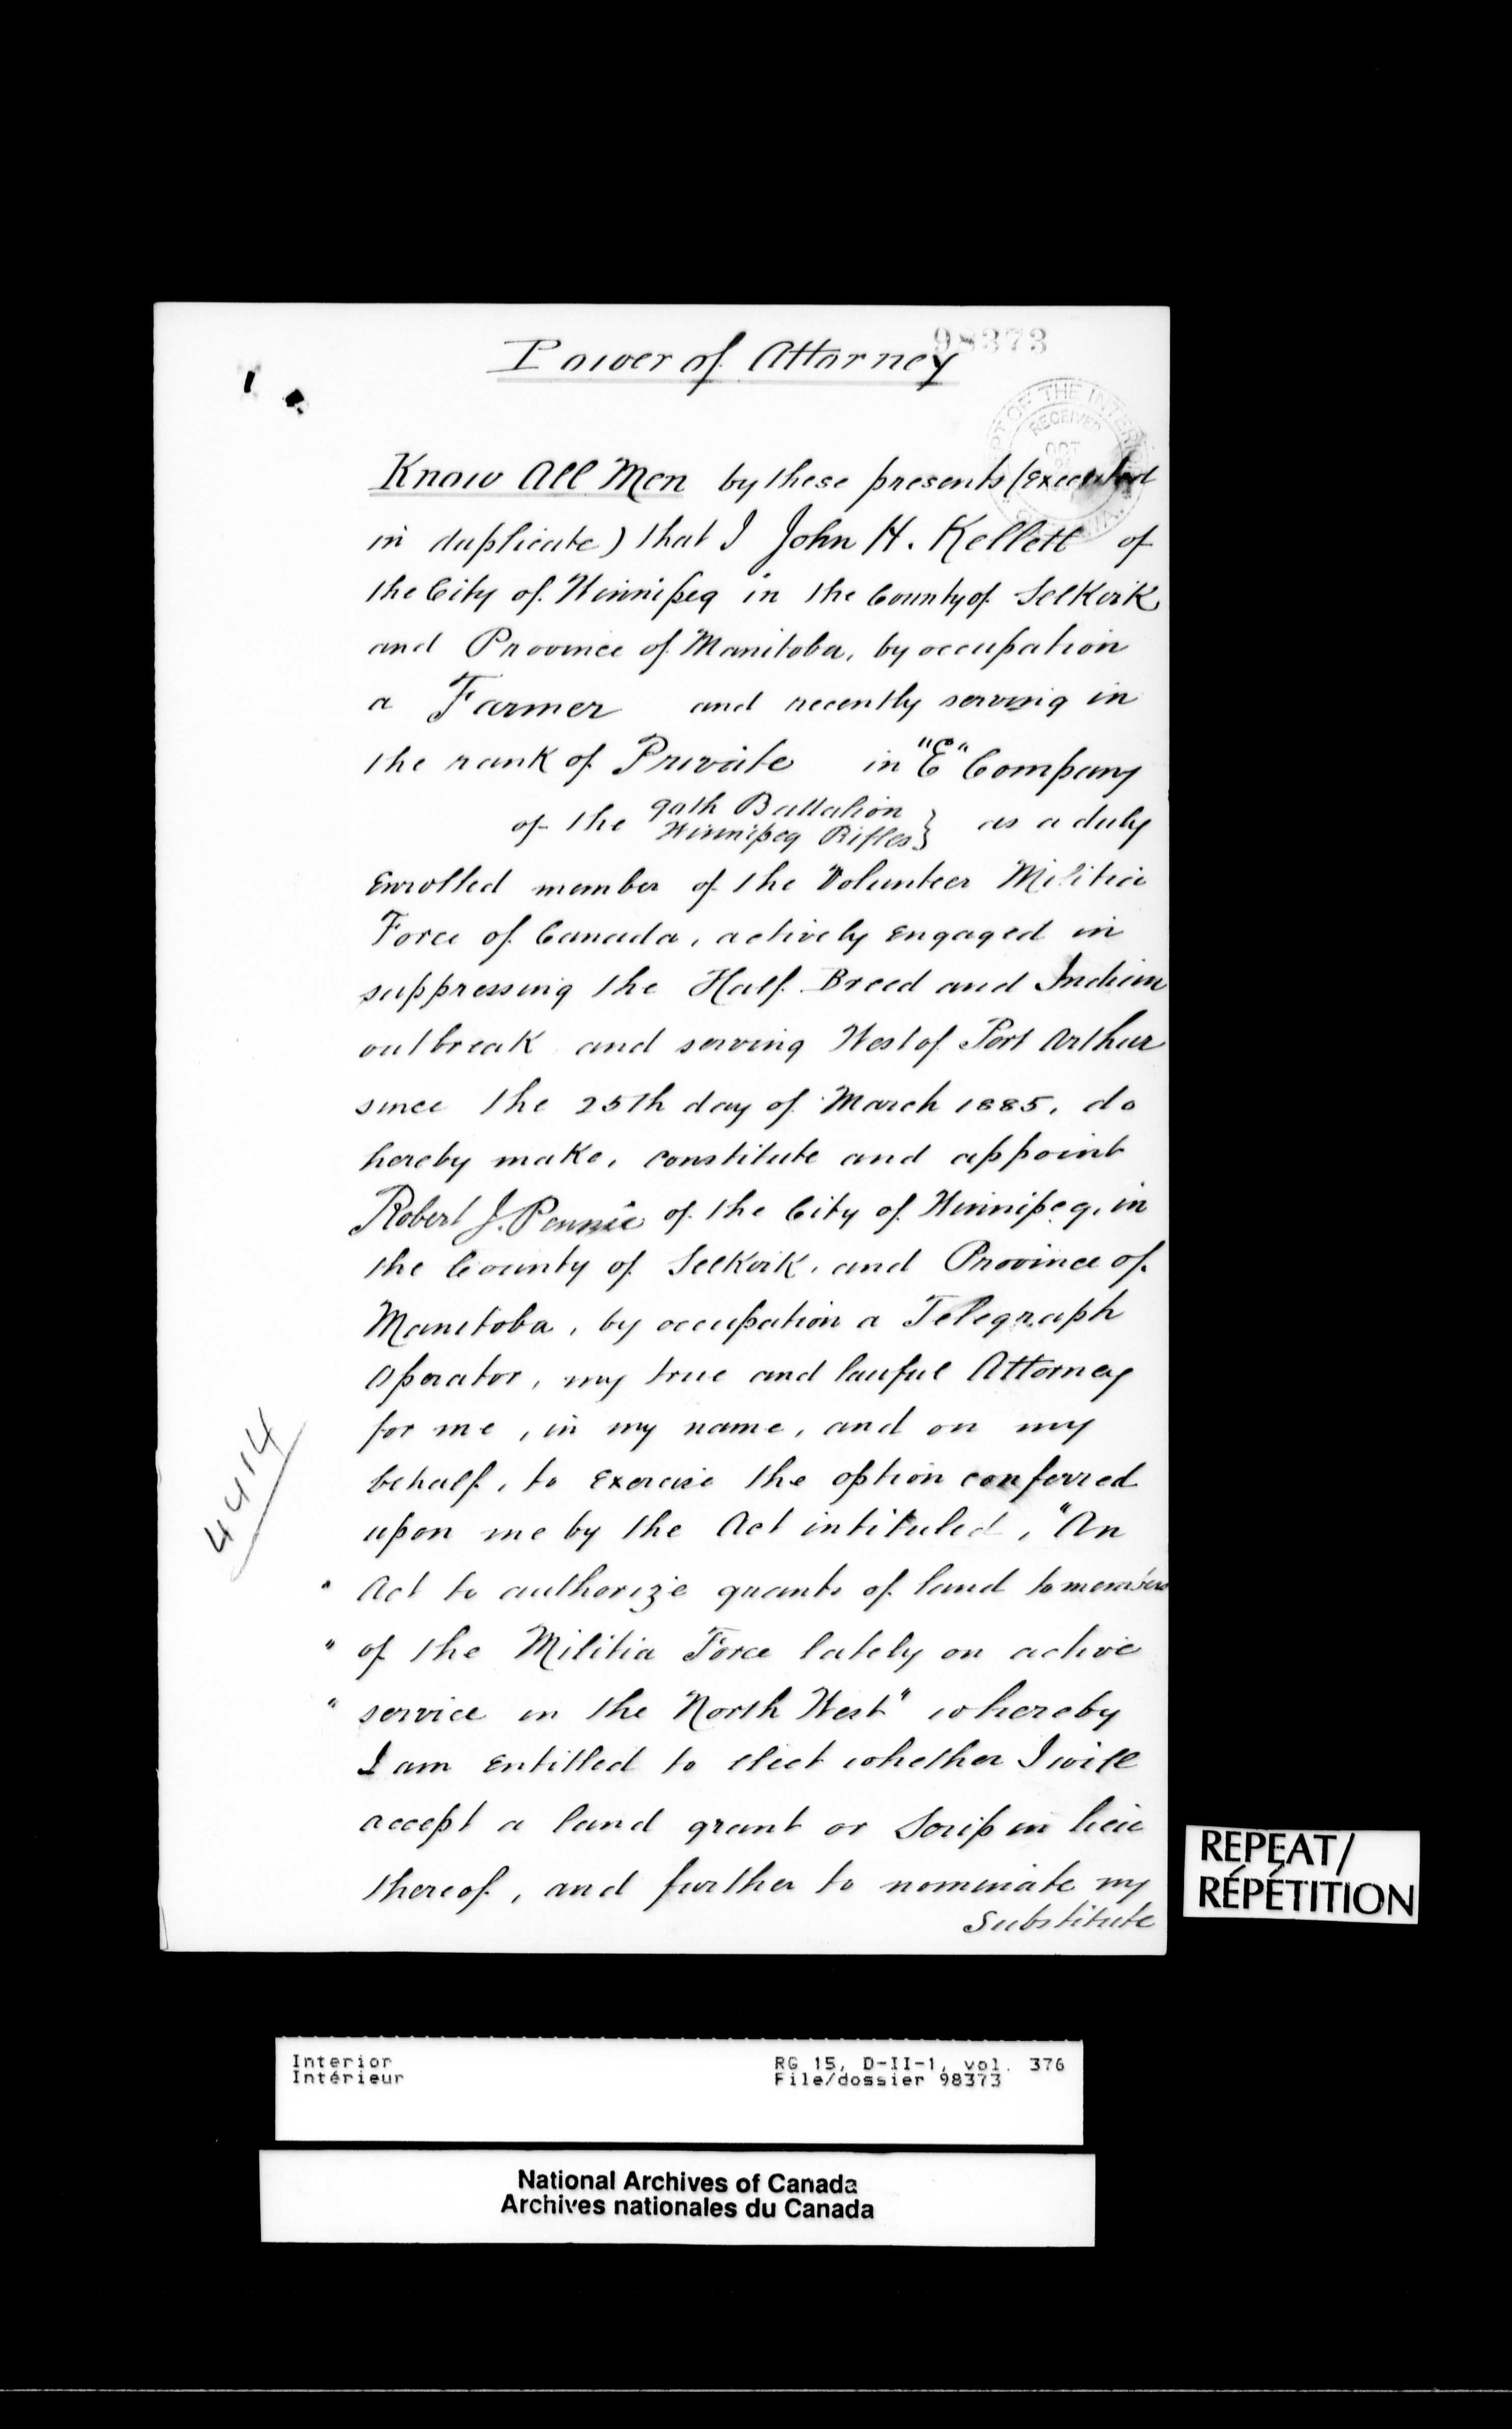 98373
Power of Attorney
PT OF THE INTER
RECEIVED
OCT
Know All Men by these presents (executed
in duplicate) that I John H. Kellett of
the City of Winnipeg in the County of Selkirk
and Province of Manitoba, by occupation
a Farmer and recently serving in
the rank of Private in "E" Company
of the 90th Battalion
Winnipeg Rifles } as a duly
Enrolled member of the Volunteer Militia
Force of Canada, actively Engaged in
suppressing the Half Breed and Indian
outbreak and serving West of Port Arthur
since the 25th day of March 1885, do
hereby make, constitute and appoint
Robert J. Pennie of the City of Winnipeg, in
the County of Selkirk, and Province of
Manitoba, by occupation a Telegraph
Operator, my true and lawful Attorney
for me, in my name, and on my
behalf, to Exercise the option conferred
upon me by the Act intituled, "An
" Act to authorize grants of land to members
" of the Militia Force lately on active
" service in the North West" whereby
I am Entitled to elect whether I will
accept a land grant or Scrip in lieu
thereof, and further to nominate my
Substitute
4414
REPEAT/
RÉPÉTITION
Interior
Intérieur
RG 15, D-II-1, vol. 376
File/dossier 98373
National Archives of Canada
Archives nationales du Canada